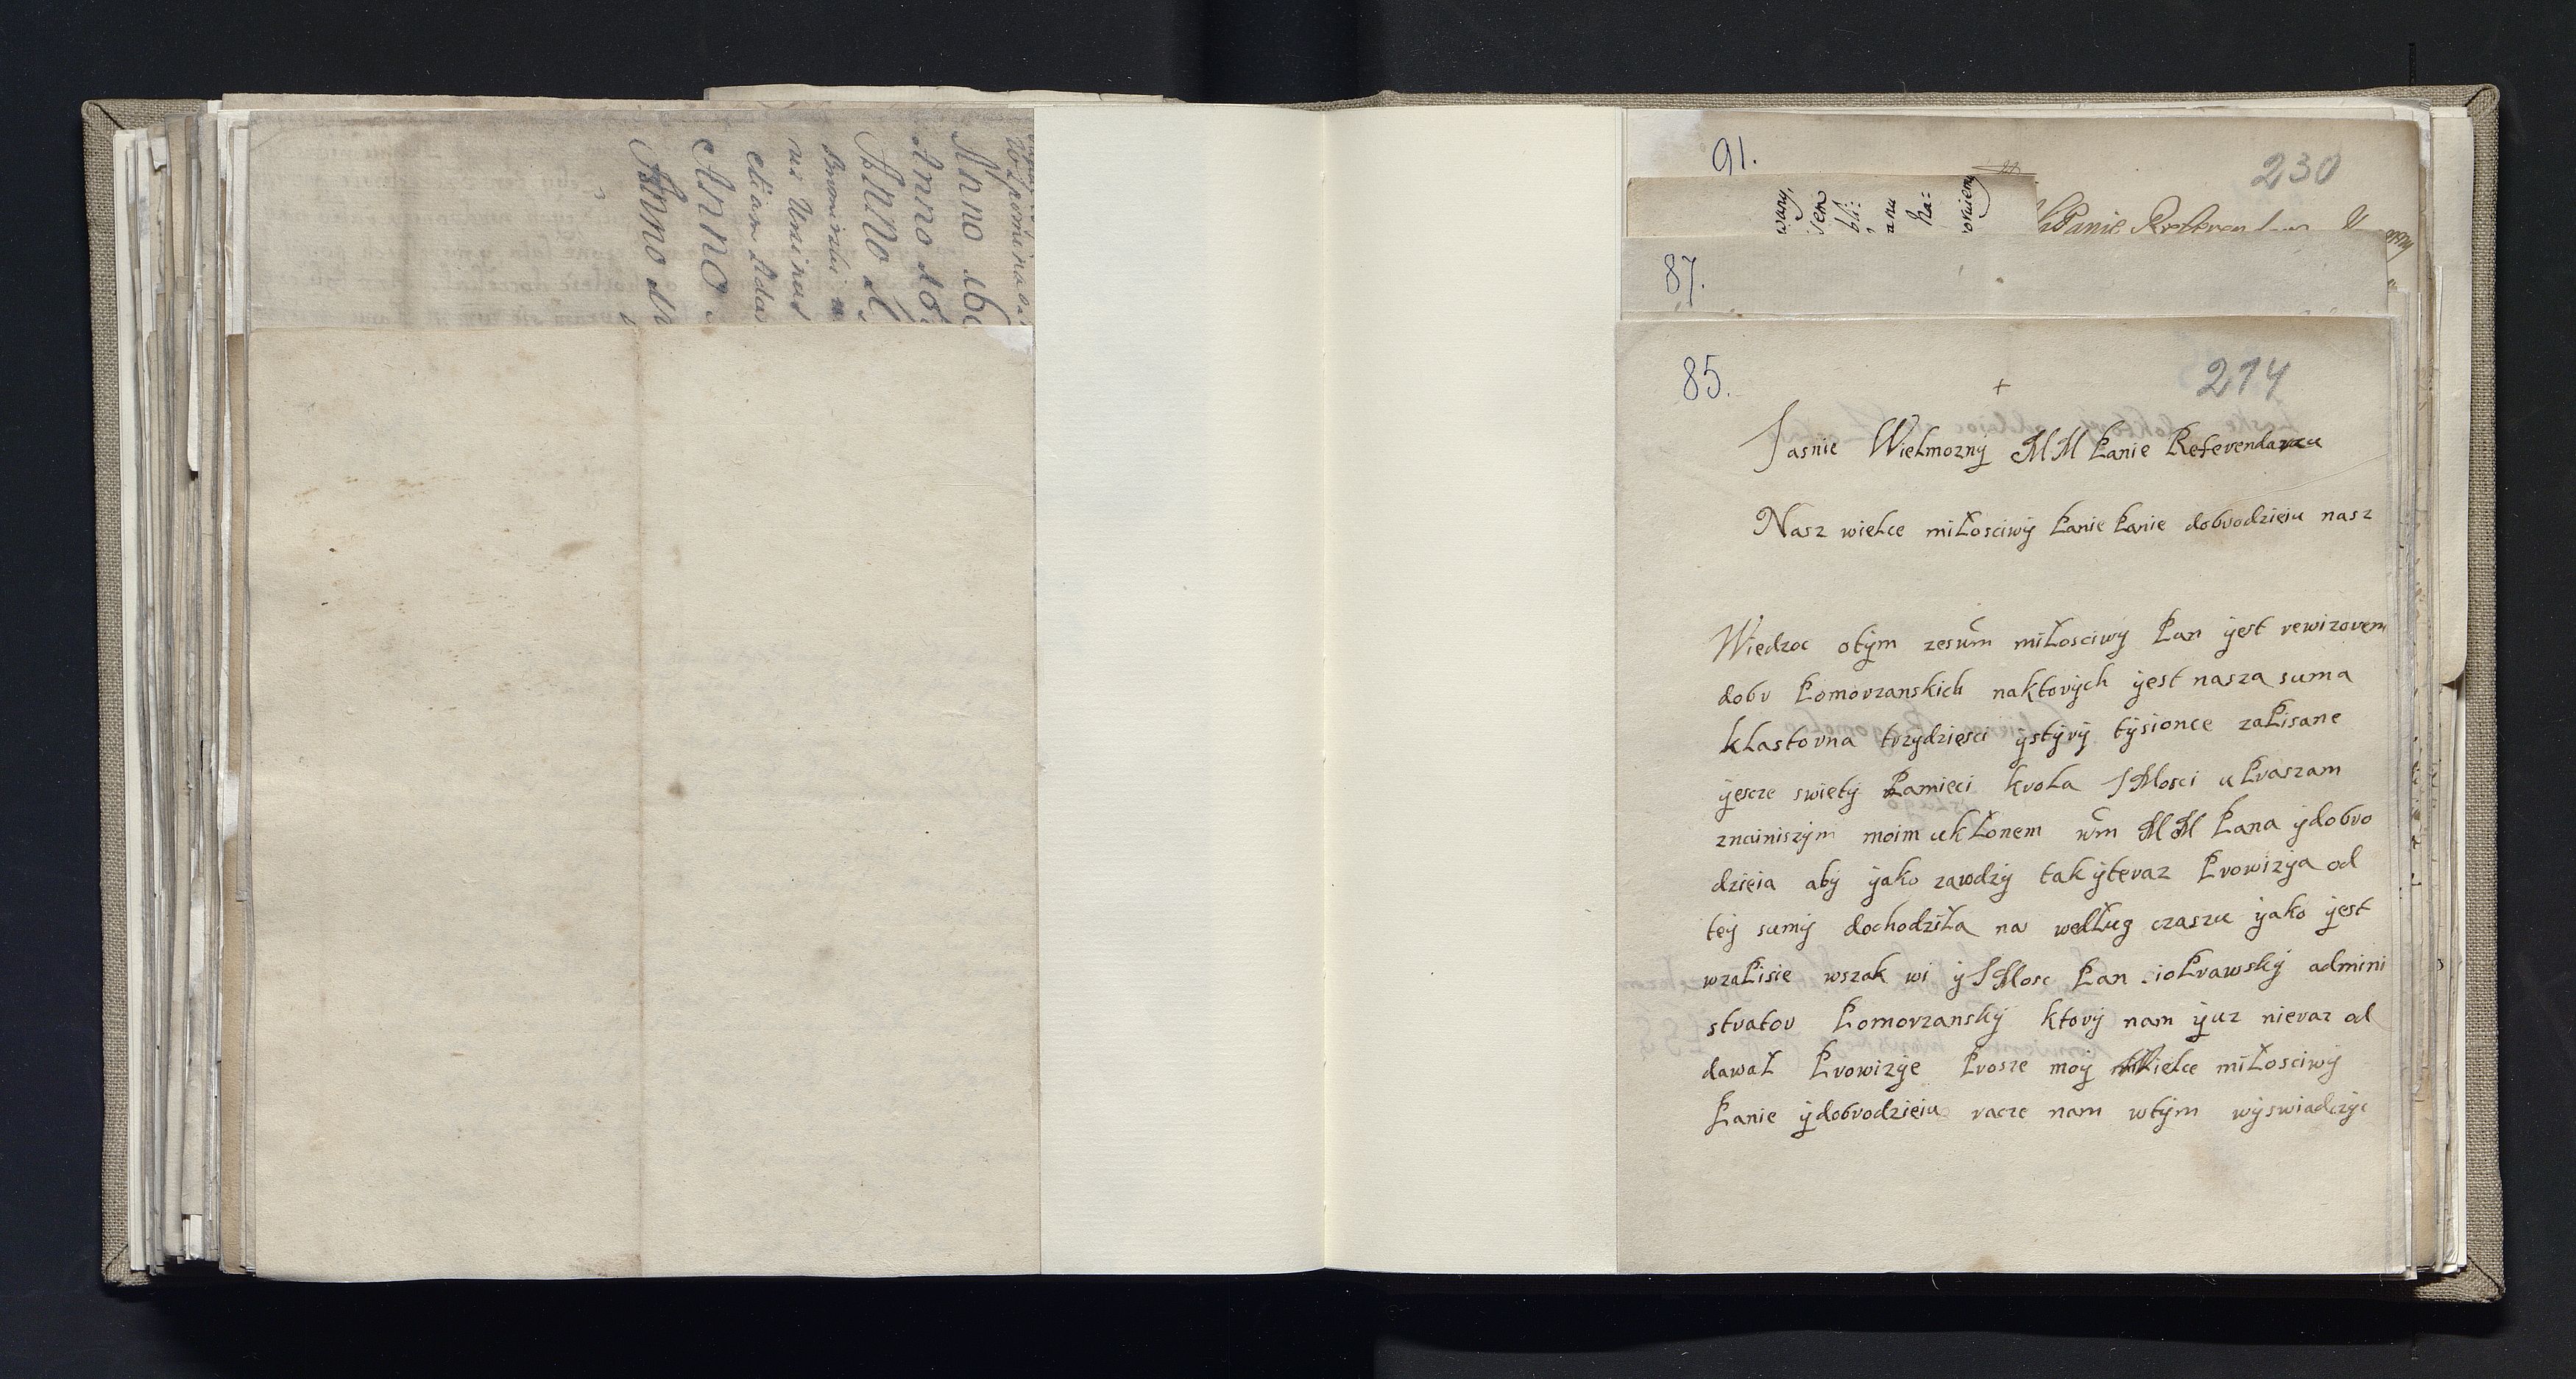 Wspomina
Anno 16
Anno 16
Anno
etiam
Anno
Anno
91.
230
wany,
sem
bli:
anu
ha:
Panie Referen
87.
85.
214
+
Jasnie Wielmozny MM Panie Referendarzu
Nasz wielce miłosciwy Panie Panie dobrodzieiu nasz
Wiedzoc otym zeswm miłosciwy Pan yest rewizorem
dobr Pomorzanskich naktorych yest nasza suma
klastorna trzydziesci ystyry tysionce zapisane
yescze swiety Pamieci krola JMosci uPraszam
znainiszym moim ukłonem wm MM Pana ydobro
dzieia aby yako zawdzy tak yteraz Prowizya od
tey sumy dochodziła na według czaszu yako yest
wzaPisie wszak wi y JMosc Pan ioPrawsky admini
strator Pomorzansky ktory nam yuz nieraz od
dawał Prowizye Prosze moy Wielce miłosciwy
Panie ydobrodzieiu racze nam wtym wyswiadczyc